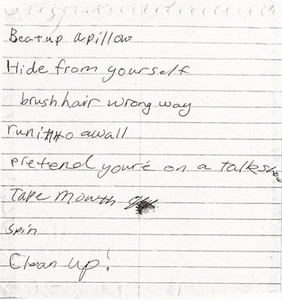 Beat up a pillow
Hide from yourself
brush hair wrong way
run itto a wall
pretend you're on a talkshow
Tape mouth
spin
Clean up!